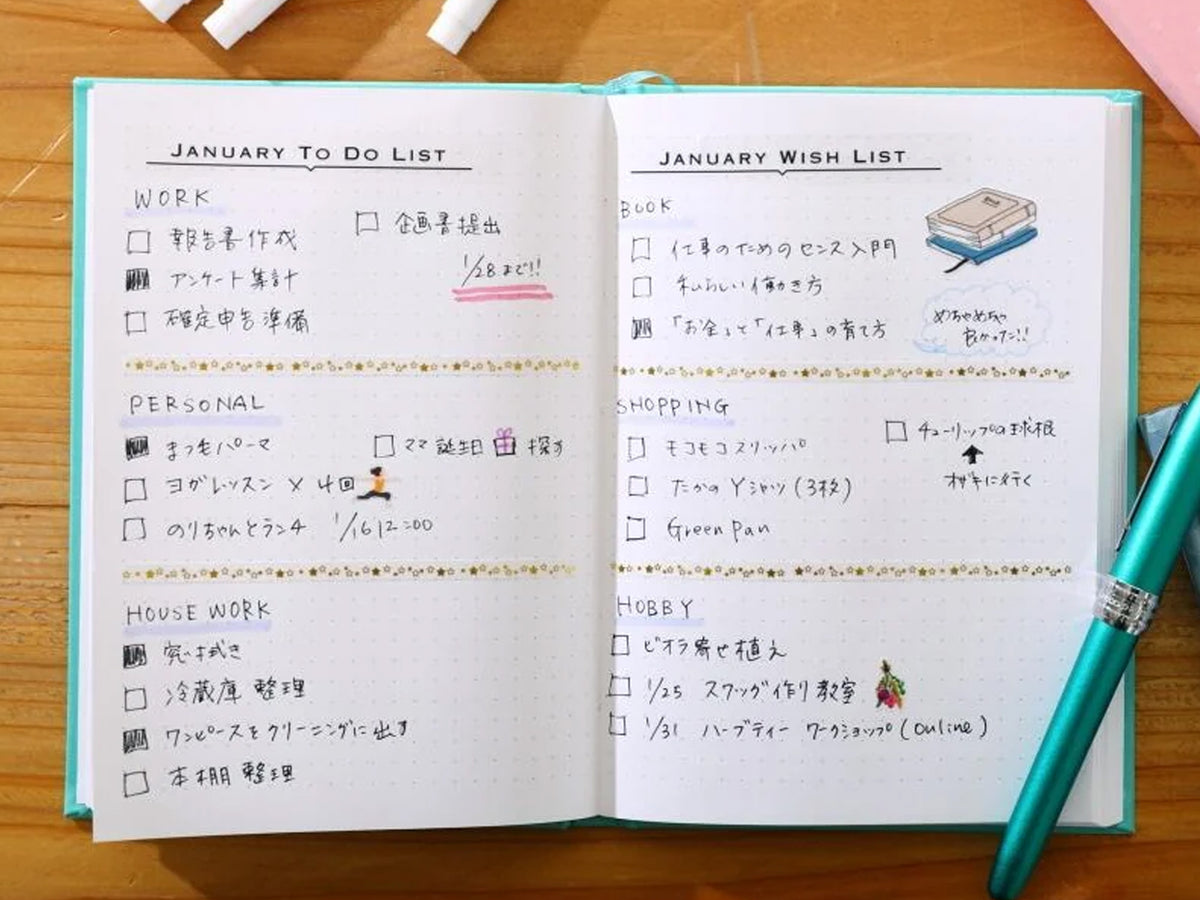 JANUARY TO DO LIST
WORK
報告書作成
アンケート集計
確定申告準備
企画書提出
1/28まで!!
PERSONAL
まつ毛パーマ
ヨガレッスン × 4回
のりちゃんとランチ 1/16 12:00
ママ誕生日 探す
HOUSE WORK
窓拭き
冷蔵庫 整理
ワンピースをクリーニングに出す
本棚 整理
JANUARY WISH LIST
BOOK
仕事のためのセンス入門
私らしい働き方
「お金」と「仕事」の育て方
めちゃめちゃ
良かった!!
SHOPPING
モコモコスリッパ
たかのYシャツ(3枚)
Green Pan
チューリップの球根
オザキに行く
HOBBY
ビオラ寄せ植え
1/25 スワッグ作り教室
1/31 ハーブティー ワークショップ(online)